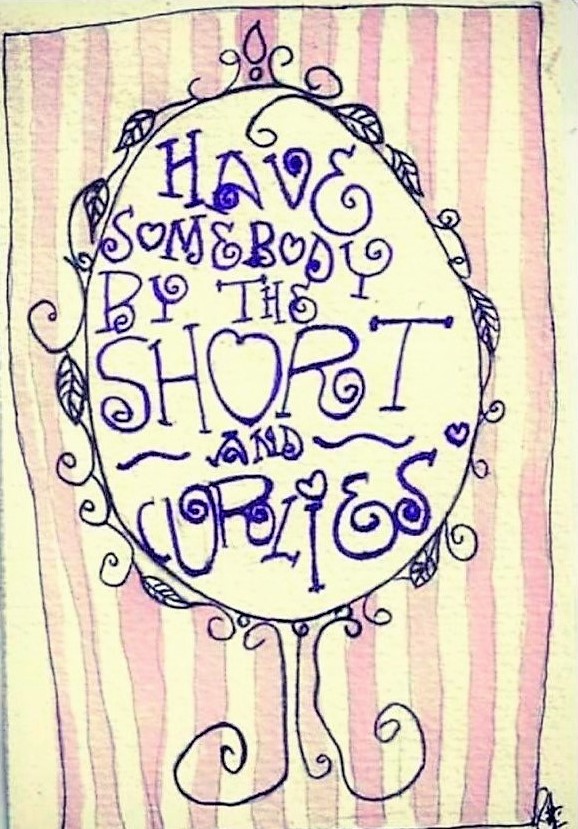 HAVE
SOMEBODY
BY THE
SHORT
AND
CURLIES